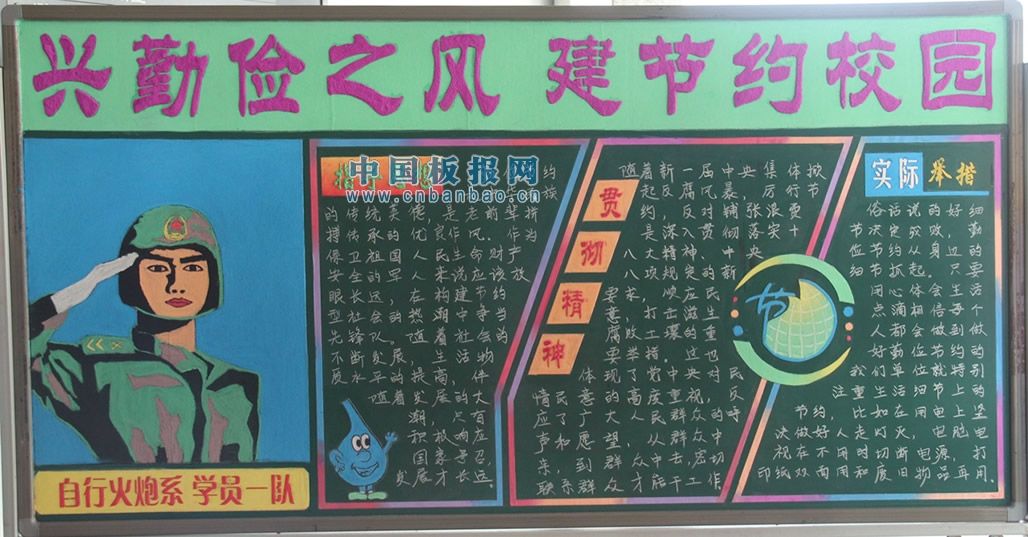 兴勤俭之风 建节约校园
中国板报网
www.cnbanbao.cn
约
族
的传统美德,是老前辈拼
搏传承的优良作风。作为
保卫祖国人民生命财产
安全的军人来说应该放
眼长远,在构建节约
型社会的热潮中争当
先锋队。随着社会的
不断发展,生活物
质水平的提高,伴
随着发展的大
潮,只有
积极响应
国家号召,
发展才长远。
贯彻精神
随着新一届中央集体掀
起反腐风暴,厉行节
约,反对铺张浪费
是深入贯彻落实十
八大精神、中央
八项规定的新
要求,顺应民
意,打击滋生
腐败土壤的重
要举措。这也
体现了党中央对民
情民意的高度重视,反
应了广大人民群众的呼
声和愿望,从群众中
来,到群众中去,密切
联系群众才能干工作
节
实际举措
俗话说的好细
节决定成败,勤
俭节约从身边的
细节抓起。只要
用心体会生活
点滴相信每个
人都会做到做
好勤俭节约的
我们单位就特别
注重生活细节上的
节约,比如在用电上坚
决做好人走灯灭,电脑电
视在不用时切断电源,打
印纸双面用和废旧物品再用。
自行火炮系 学员一队